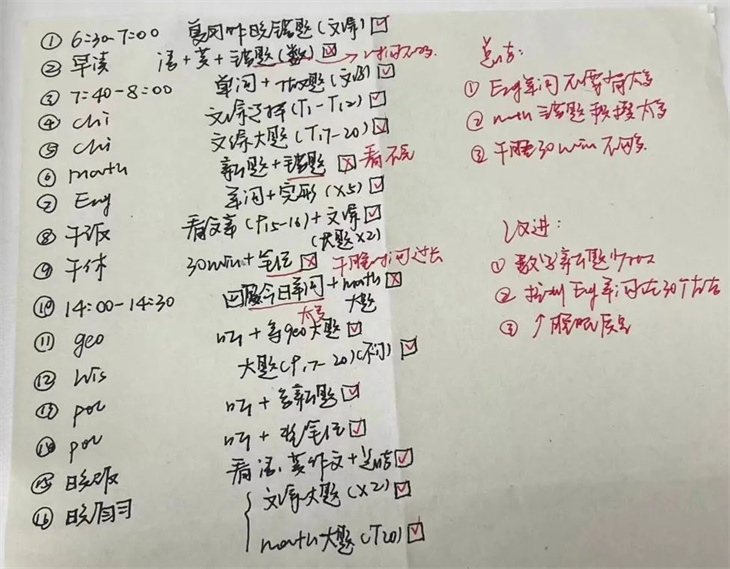 ① 6:30-7:00 复习昨晚错题(文综)
② 早读 语+英+错题(数) → 时间不够.
③ 7:40-8:00 单词+改题(文综)
④ chi 文综选择(T1-T12)
⑤ chi 文综大题(T17-20)
⑥ math 新题+错题 看不完
⑦ Eng 单词+完形(x5)
⑧ 午饭 看文章(P15-16)+文综
(大题x2)
⑨ 午休 30min+笔记 午睡时间过长
⑩ 14:00-14:30 回顾今日单词+math
太多 大题
⑪ geo 听+写geo大题
⑫ his 大题(P.17-20)
⑬ pol 听+新题
⑭ pol 听+笔记
⑮ 晚饭 看语、英作文+总结
⑯ 晚自习 文综大题(x2)
math大题(T20)
总结:
① Eng单词不需背太多
② math错题积攒太多
③ 午睡30min不够
改进:
① 数学新题少
② 控制Eng单词在30个左右
③ ↑睡眠质量